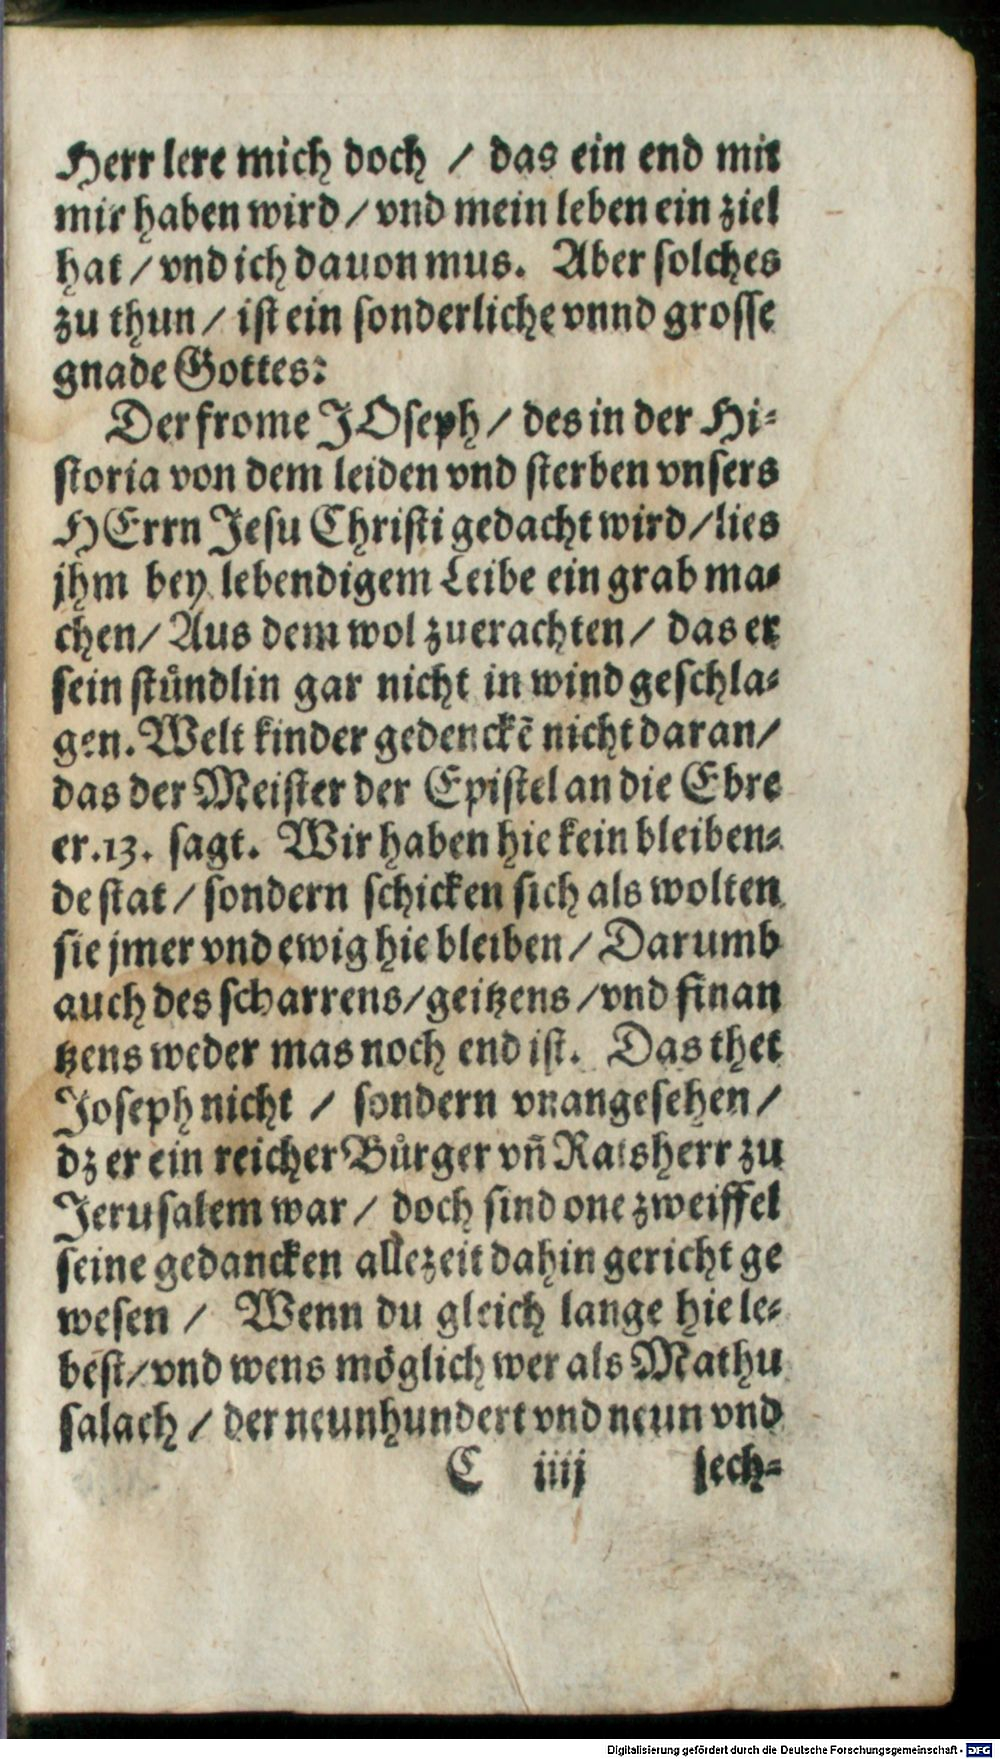 Herr lere mich doch / das ein end mit
mir haben wird / vnd mein leben ein ziel
hat / vnd ich dauon mus. Aber solches
zu thun / ist ein sonderliche vnnd grosse
gnade Gottes:
Der frome JOseph / des in der Hi⸗
storia von dem leiden vnd sterben vnsers
HErrn Jesu Christi gedacht wird / lies
jhm bey lebendigem Leibe ein grab ma⸗
chen / Aus dem wol zuerachten / das er
sein stuͤndlin gar nicht in wind geschla⸗
gen. Welt kinder gedenckē nicht daran /
das der Meister der Epistel an die Ebre
er. 13. sagt. Wir haben hie kein bleiben⸗
de stat / sondern schicken sich als wolten
sie jmer vnd ewig hie bleiben / Darumb
auch des scharrens / geitzens / vnd finan
tzens weder mas noch end ist. Das thet
Joseph nicht / sondern vnangesehen /
dz er ein reicher Buͤrger vñ Ratsherr zu
Jerusalem war / doch sind one zweiffel
seine gedancken allezeit dahin gericht ge
wesen / Wenn du gleich lange hie le⸗
best / vnd wens moͤglich wer als Mathu
salach / der neunhundert vnd neun vnd
C iiij sech⸗
Digitalisierung gefördert durch die Deutsche Forschungsgemeinschaft - DFG